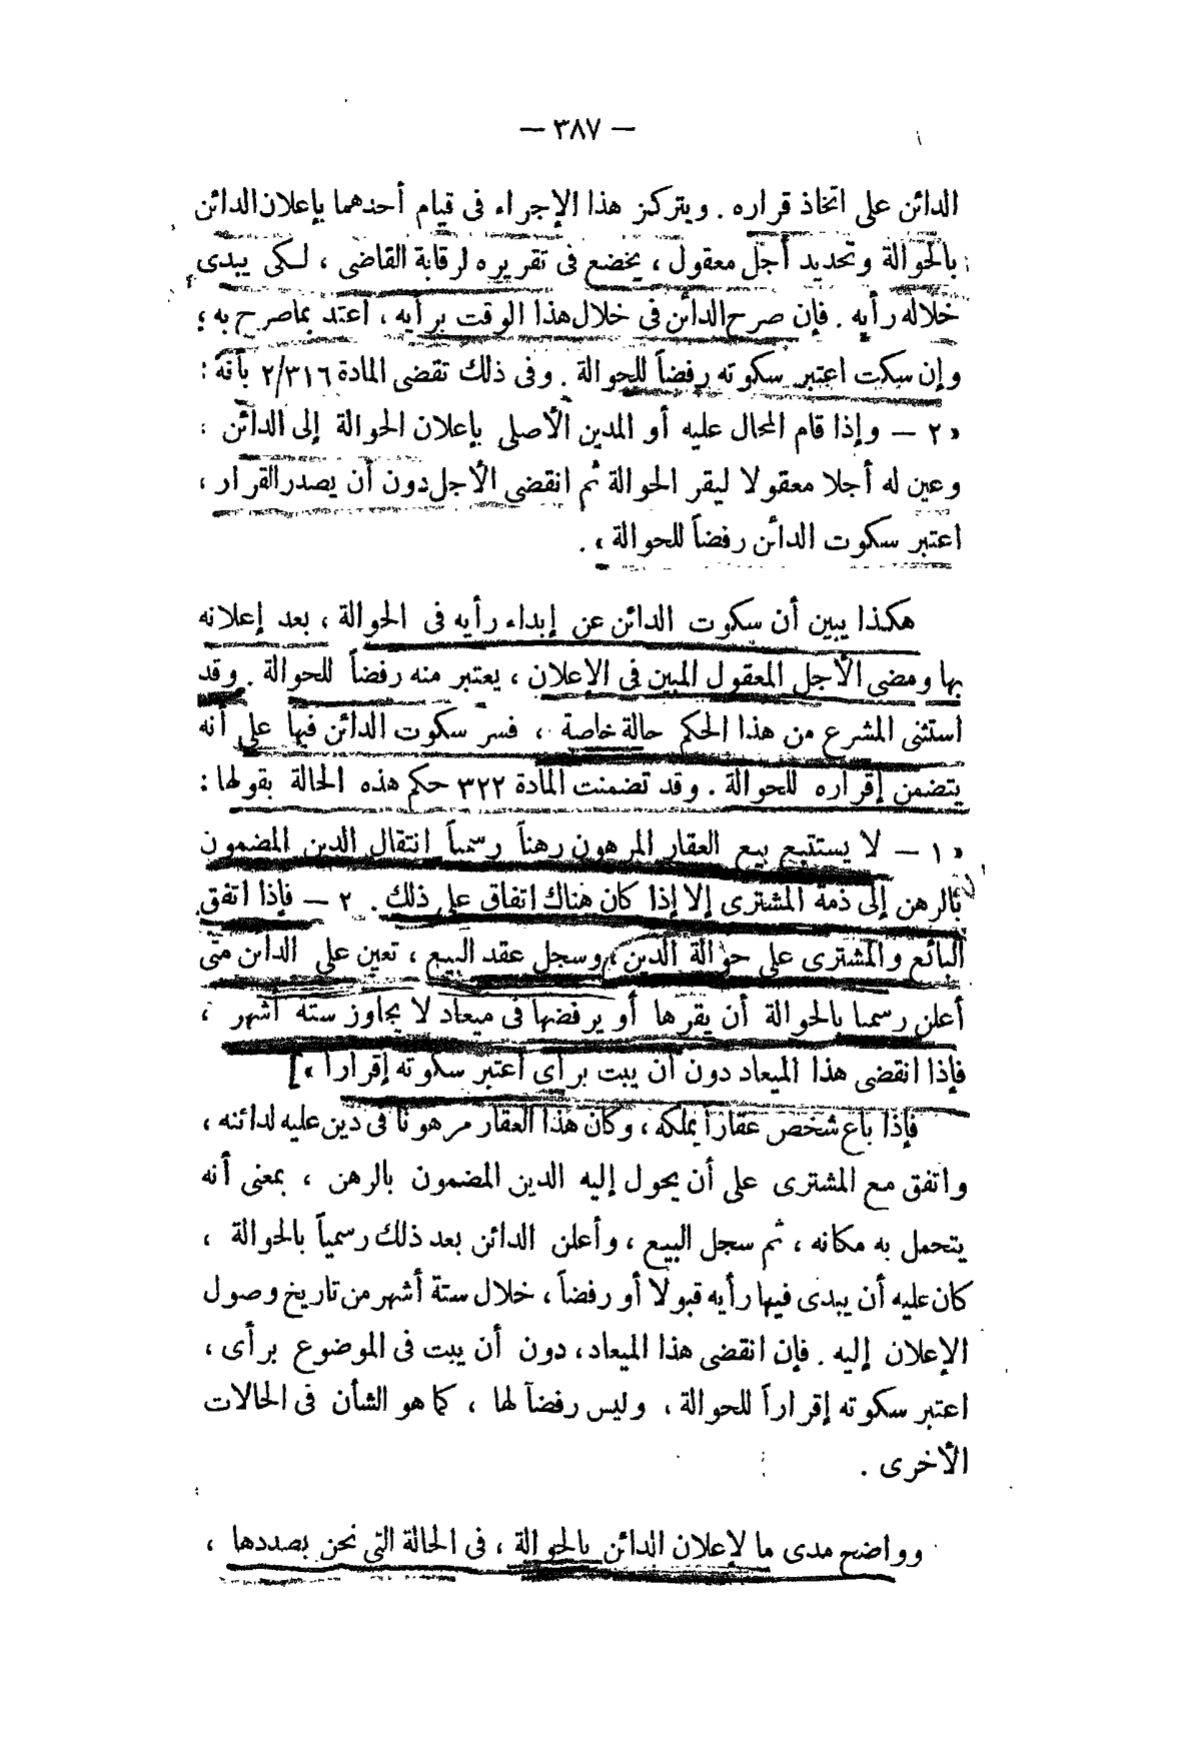 — ٣٨٧ —
الدائن على اتخاذ قراره . ويتركز هذا الإجراء فى قيام أحدهما بإعلان الدائن
بالحوالة وتحديد أجل معقول ، يخضع فى تقريره لرقابة القاضى ، لكى يبدى
خلاله رأيه . فإن صرح الدائن فى خلال هذا الوقت برأيه ، اعتد بما صرح به ؛
وإن سكت اعتبر سكوته رفضاً للحوالة . وفى ذلك تقضى المادة ٢/٣١٦ بأنه :
« ٢ — وإذا قام المحال عليه أو المدين الأصلى بإعلان الحوالة إلى الدائن ،
وعين له أجلا معقولا ليقر الحوالة ثم انقضى الأجل دون أن يصدر القرار ،
اعتبر سكوت الدائن رفضاً للحوالة » .
هكذا يبين أن سكوت الدائن عن إبداء رأيه فى الحوالة ، بعد إعلانه
بها ومضى الأجل المعقول المبين فى الإعلان ، يعتبر منه رفضاً للحوالة . وقد
استثنى المشرع من هذا الحكم حالة خاصة ، فسر سكوت الدائن فيها على أنه
يتضمن إقراره للحوالة . وقد تضمنت المادة ٣٢٢ حكم هذه الحالة بقولها :
« ١ — لا يستتبع بيع العقار المرهون رهناً رسمياً انتقال الدين المضمون
بالرهن إلى ذمة المشترى إلا إذا كان هناك اتفاق على ذلك . ٢ — فإذا اتفق
البائع والمشترى على حوالة الدين ، وسجل عقد البيع ، تعين على الدائن متى
أعلن رسميا بالحوالة أن يقرها أو يرفضها فى ميعاد لا يجاوز ستة أشهر ،
فإذا انقضى هذا الميعاد دون أن يبت برأى اعتبر سكوته إقراراً » ]
فإذا باع شخص عقاراً يملكه ، وكان هذا العقار مرهونا فى دين عليه لدائنه ،
واتفق مع المشترى على أن يحول إليه الدين المضمون بالرهن ، بمعنى أنه
يتحمل به مكانه ، ثم سجل البيع ، وأعلن الدائن بعد ذلك رسمياً بالحوالة ،
كان عليه أن يبدى فيها رأيه قبولا أو رفضاً ، خلال ستة أشهر من تاريخ وصول
الإعلان إليه . فإن انقضى هذا الميعاد ، دون أن يبت فى الموضوع برأى ،
اعتبر سكوته إقراراً للحوالة ، وليس رفضاً لها ، كما هو الشأن فى الحالات
الأخرى .
وواضح مدى ما لإعلان الدائن بالحوالة ، فى الحالة التى نحن بصددها ،